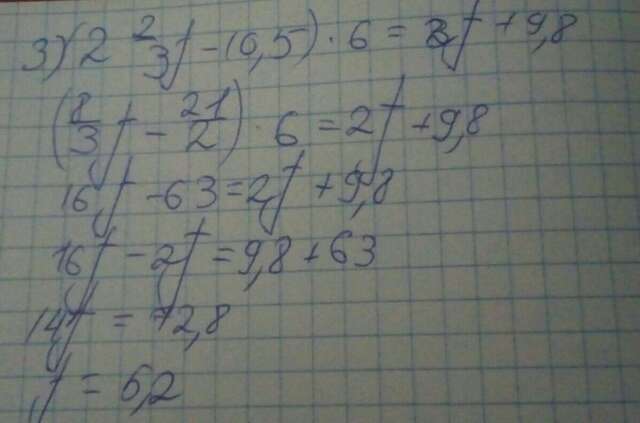 3) (2 2/3 y - 10,5) · 6 = 2y + 9,8
(8/3 y - 21/2) 6 = 2y + 9,8
16y - 63 = 2y + 9,8
16y - 2y = 9,8 + 63
14y = 72,8
y = 5,2